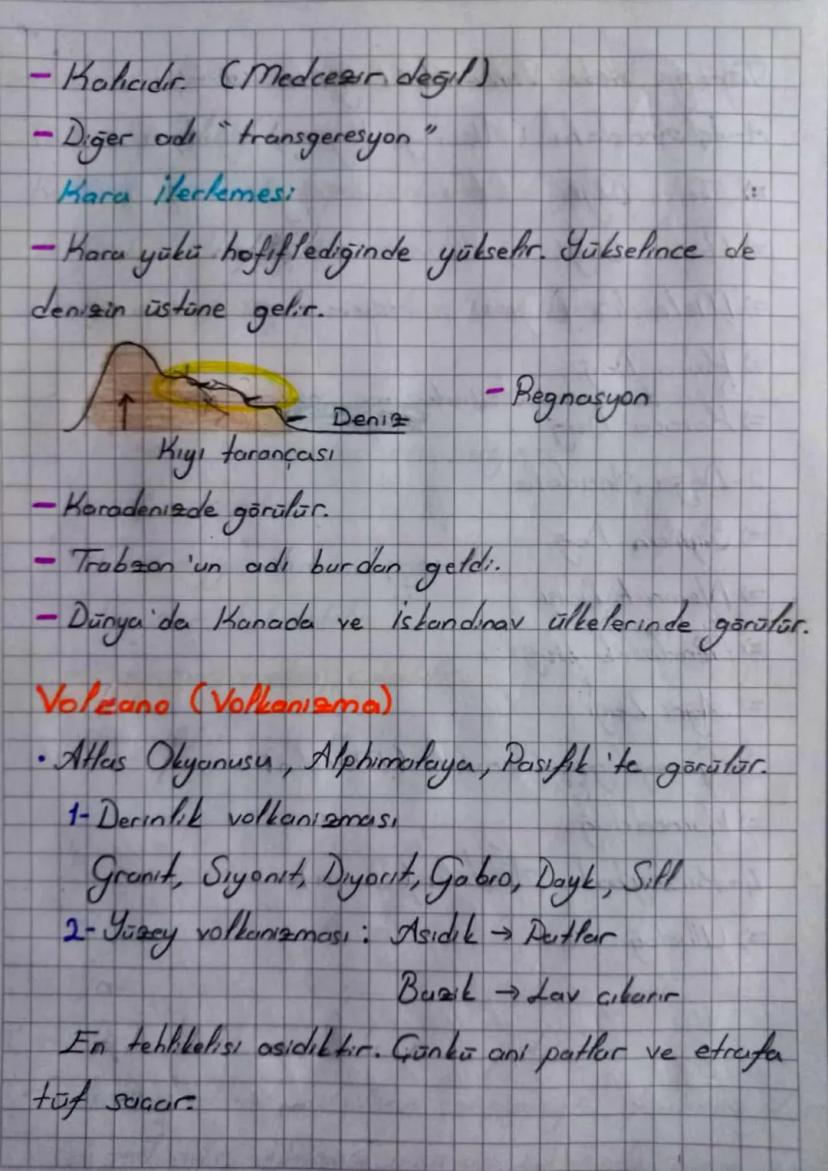 - Kalıcıdır. (Medcezir değil)
- Diğer adı "transgeresyon"
Kara ilerlemesi
- Kara yükü hafiflediğinde yükselir. Yükselince de
denizin üstüne gelir.
Deniz
- Regnasyon
Kıyı tarançası
- Karadenizde görülür.
- Trabzon'un adı burdan geldi.
- Dünya'da Kanada ve İskandinav ülkelerinde görülür.
Volcano (Volkanizma)
• Atlas Okyanusu, Alphimalaya, Pasifik'te görülür.
1- Derinlik volkanizması
Granit, Siyonit, Diyorit, Gabro, Dayk, Sill
2- Yüzey volkanizması: Asidik → Patlar
Bazik → Lav çıkarır
En tehlikelisi asidiktir. Çünkü ani patlar ve etrafa
tüf saçar.